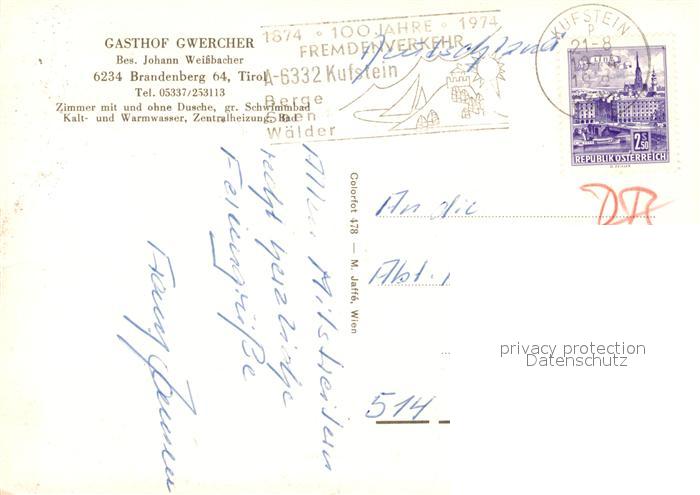 GASTHOF GWERCHER
Bes. Johann Weißbacher
6234 Brandenberg 64, Tirol
Tel. 05337/253113
Zimmer mit und ohne Dusche, gr. Schwimmbad
Kalt- und Warmwasser, Zentralheizung, Bad
1874 · 100 JAHRE · 1974
FREMDENVERKEHR
A-6332 Kufstein
Berge
Seen
Wälder
Deutschland
KUFSTEIN
P
21-8
LINZ
2 S 50
REPUBLIK ÖSTERREICH
Allen Mitstreitern
recht herzliche
Feriengrüße
Colorfot 478 — M. Jaffé, Wien
An die
Abt.
514
privacy protection
Datenschutz